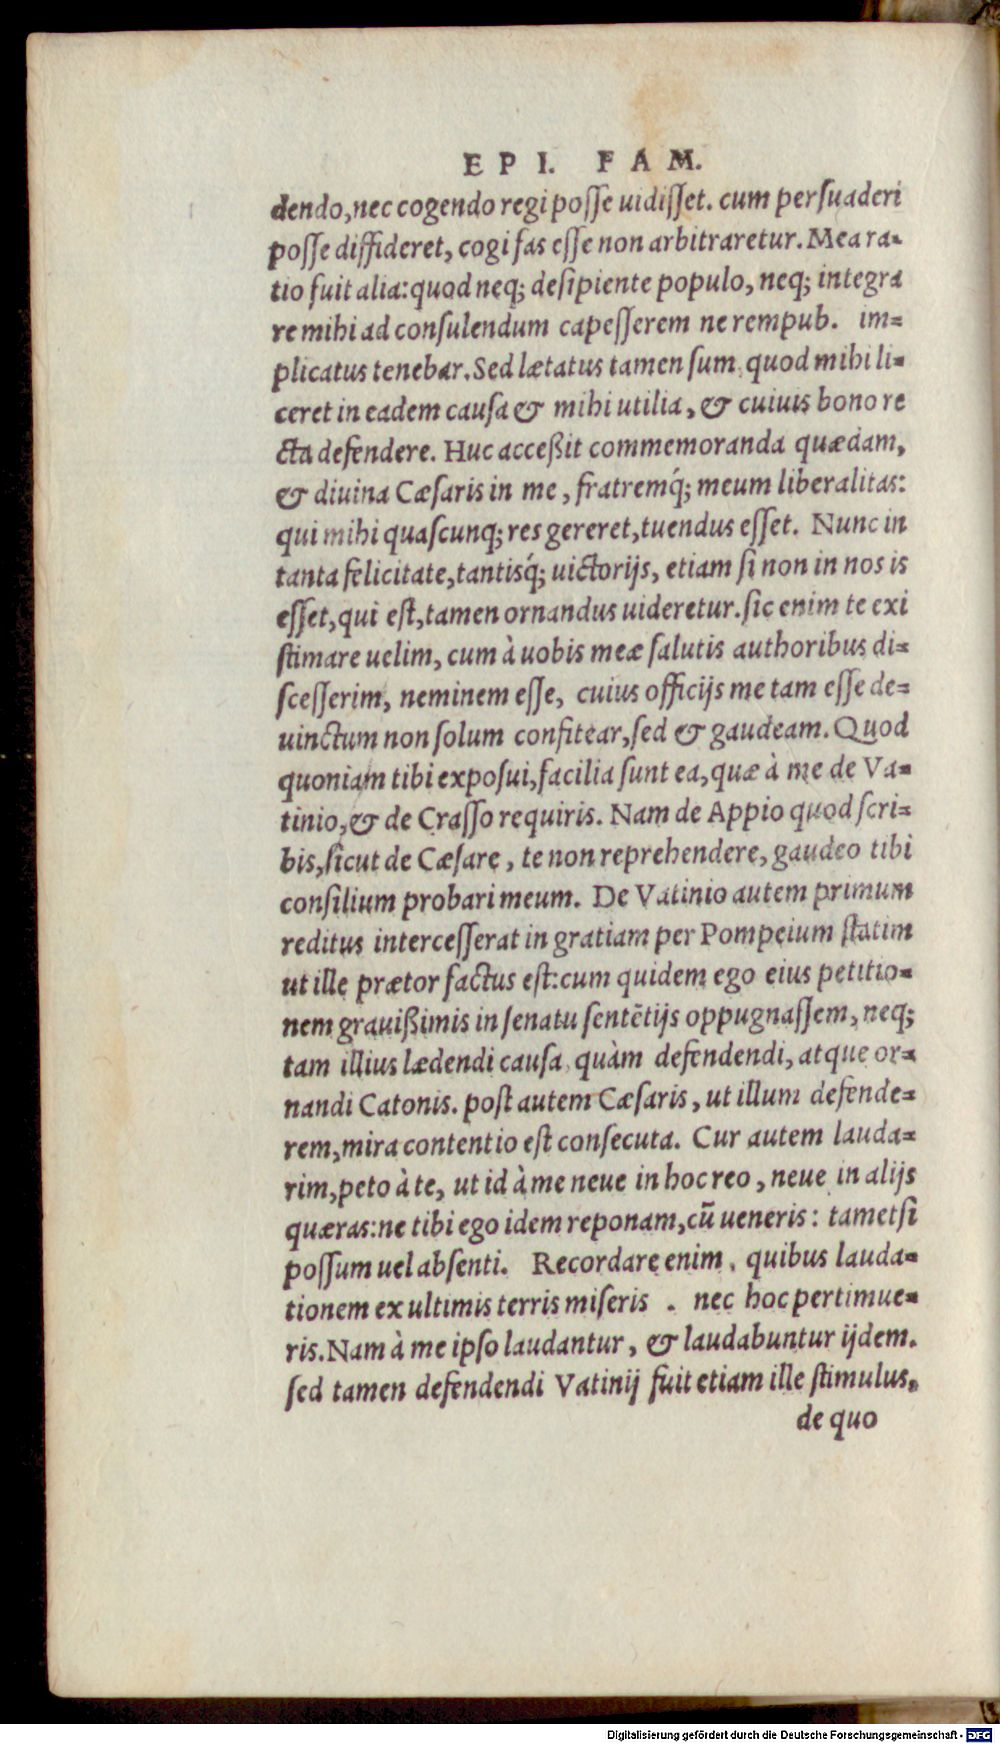 EPI. FAM.
dendo, nec cogendo regi posse uidisset. cum persuaderi
posse diffideret, cogi fas esse non arbitraretur. Mea ra-
tio fuit alia: quod neq; desipiente populo, neq; integra
re mihi ad consulendum capesserem ne rempub. im-
plicatus tenebar. Sed lætatus tamen sum, quod mihi li-
ceret in eadem causa & mihi utilia, & cuiuis bono re
cta defendere. Huc acceßit commemoranda quædam,
& diuina Cæsaris in me, fratremq́; meum liberalitas:
qui mihi quascunq; res gereret, tuendus esset. Nunc in
tanta felicitate, tantisq́; uictorijs, etiam si non in nos is
esset, qui est, tamen ornandus uideretur. sic enim te exi
stimare uelim, cum à uobis meæ salutis authoribus di-
scesserim, neminem esse, cuius officijs me tam esse de-
uinctum non solum confitear, sed & gaudeam. Quod
quoniam tibi exposui, facilia sunt ea, quæ à me de Va-
tinio, & de Crasso requiris. Nam de Appio quod scri-
bis, sicut de Cæsare, te non reprehendere, gaudeo tibi
consilium probari meum. De Vatinio autem primum
reditus intercesserat in gratiam per Pompeium statim
ut ille prætor factus est: cum quidem ego eius petitio-
nem grauißimis in senatu sentẽtijs oppugnassem, neq;
tam illius lædendi causa, quàm defendendi, atque or-
nandi Catonis. post autem Cæsaris, ut illum defende-
rem, mira contentio est consecuta. Cur autem lauda-
rim, peto à te, ut id à me neue in hoc reo, neue in alijs
quæras: ne tibi ego idem reponam, cũ ueneris: tametsi
possum uel absenti. Recordare enim, quibus lauda-
tionem ex ultimis terris miseris . nec hoc pertimue-
ris. Nam à me ipso laudantur, & laudabuntur ijdem.
sed tamen defendendi Vatinij fuit etiam ille stimulus,
de quo
Digitalisierung gefördert durch die Deutsche Forschungsgemeinschaft - DFG